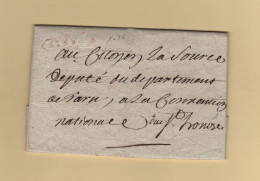 au Citoyen La Source
député du departement
du Tarn, a la Convention
nationale rue St honoré